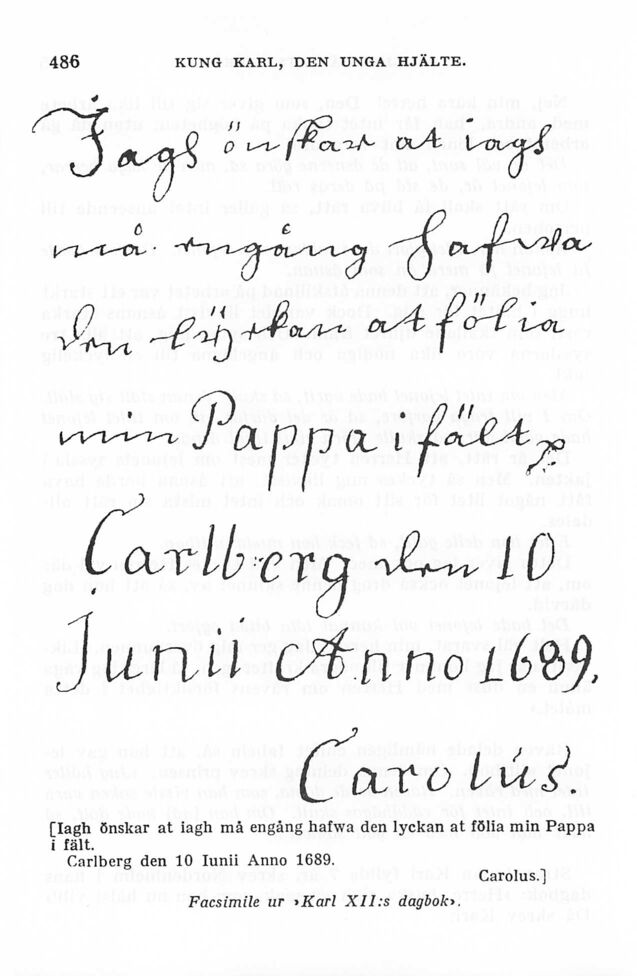 486 KUNG KARL, DEN UNGA HJÄLTE.
Iagh önskar at iagh
må engång hafwa
den lÿckan at fölia
min Pappa i fält
Carlberg den 10
Junii Anno 1689.
Carolus.
[Iagh önskar at iagh må engång hafwa den lyckan at fölia min Pappa
i fält.
Carlberg den 10 Iunii Anno 1689.
Carolus.]
Facsimile ur »Karl XII:s dagbok».